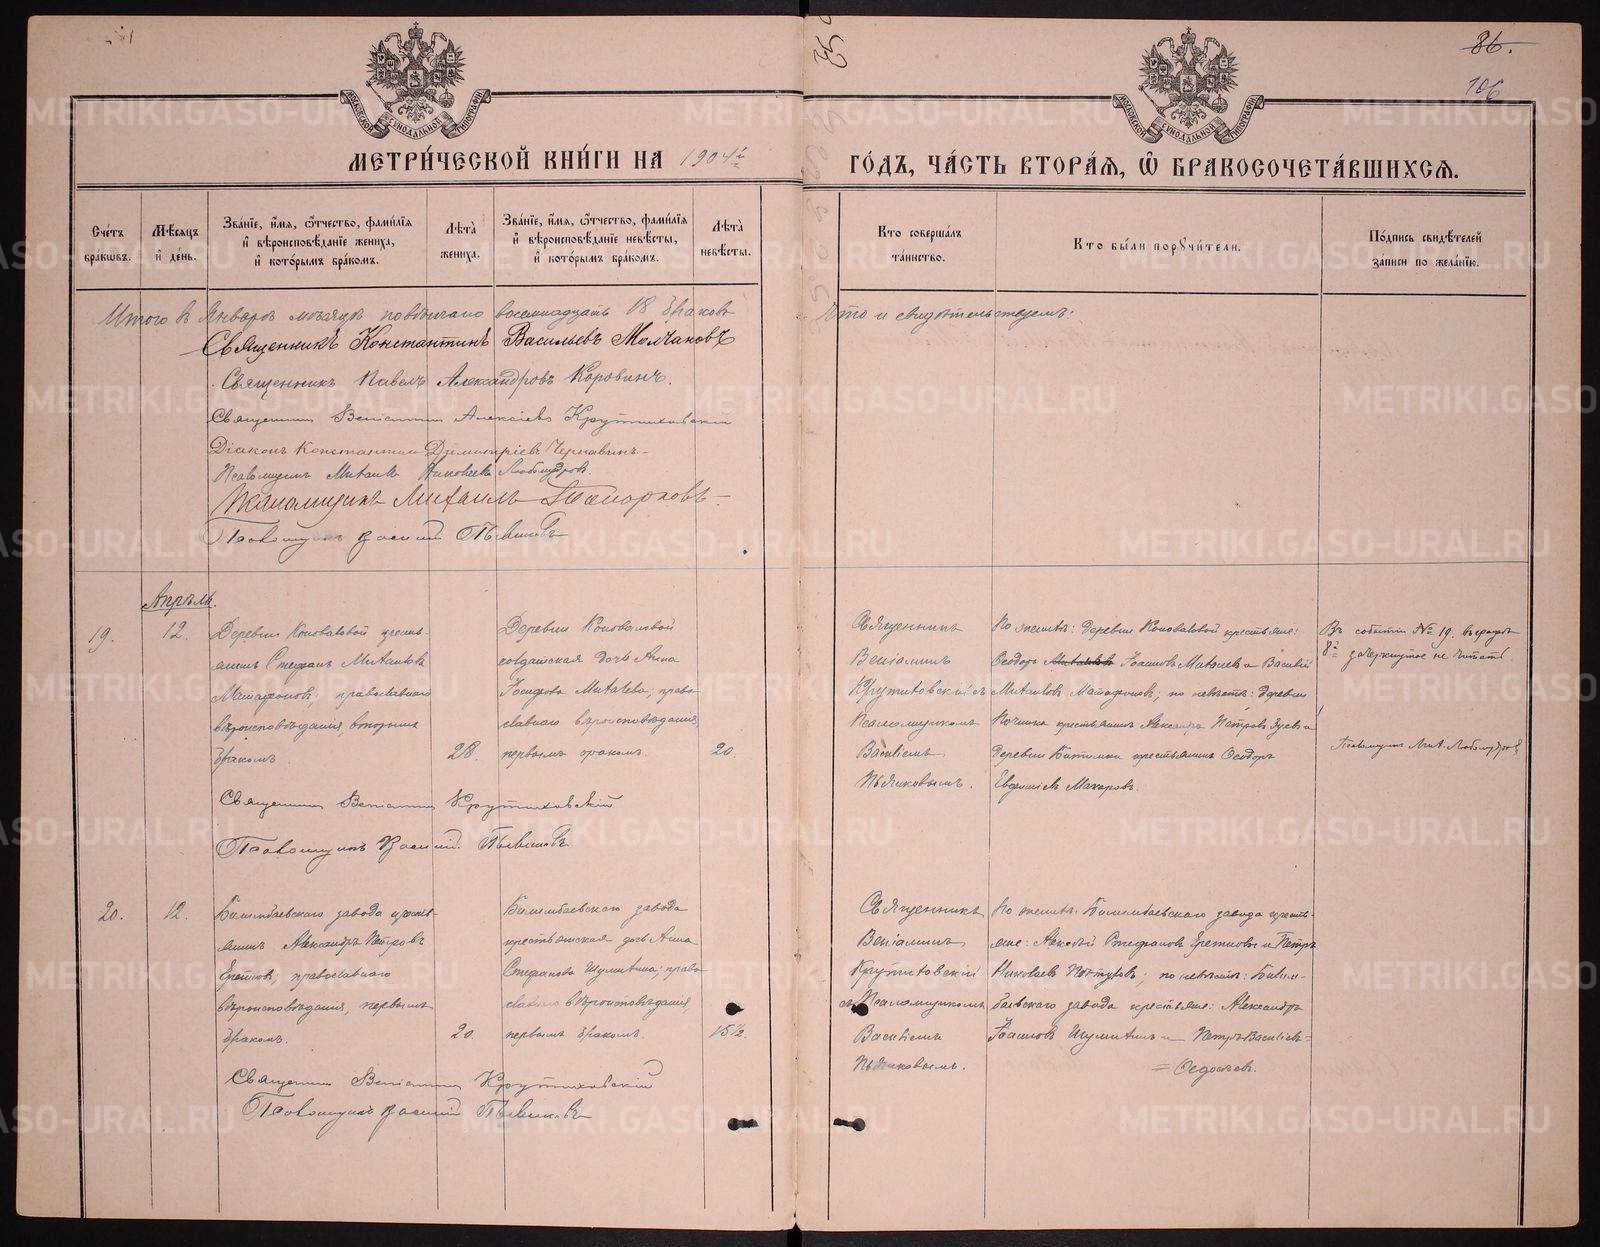 86.
106
МЕТРИ́ЧЕСКОЙ КНИ́ГИ НА 1904й
ГО́ДЪ, ЧА́СТЬ ВТОРА́Я, Ѿ БРАКОСОЧЕТА́ВШИХСЯ.
Сче́тъ бра́кѡвъ.
Мѣ́сяцъ и҆ де́нь.
Зва́нїе, и҆́мя, ѻ҆́тчество, фами́лїя и҆ вѣроисповѣ́данїе жениха̀, и҆ кото́рымъ бра́комъ.
Лѣ́та̀ жениха̀.
Зва́нїе, и҆́мя, ѻ҆́тчество, фами́лїя и҆ вѣроисповѣ́данїе невѣ́сты, и҆ кото́рымъ бра́комъ.
Лѣ́та̀ невѣ́сты.
Кто̀ соверша́лъ та́инство.
Кто̀ бы́ли порꙋчи́тели.
По́дпись свидѣ́телей за́писи по жела́нїю.
Итого въ Январѣ мѣсяцѣ повѣнчано восемнадцать 18 браковъ
Что и свидѣтельствуемъ:
Священникъ Константинъ Васильевъ Молчановъ
Священникъ Павелъ Александровъ Коровинъ.
Священникъ Веніаминъ Алексіевъ Крутиховскій
Діаконъ Константинъ Димитріевъ Чернавинъ
Псаломщикъ Михаилъ Николаевъ Любомудровъ.
Псаломщикъ Михаилъ Топорковъ
Псаломщикъ Василій Пьянковъ
Апрѣль.
19.
12.
Деревни Коноваловой кресть-
янинъ Стефанъ Михаиловъ
Матафоновъ, православнаго
вѣроисповѣданія, вторымъ
бракомъ.
28.
Деревни Коноваловой
солдатская дочь Анна
Іосифова Михалева, право-
славнаго вѣроисповѣданія,
первымъ бракомъ.
20.
Священникъ
Веніаминъ
Крутиховскій съ
Псаломщикомъ
Василіемъ
Пьянковымъ.
По женихѣ: деревни Коноваловой крестьяне:
Ѳеодоръ Михаиловъ Іоанновъ Мохалевъ и Василій
Михаиловъ Матафоновъ; по невѣстѣ: деревни
Починка крестьянинъ Александръ Петровъ Зуевъ и
деревни Битимки крестьянинъ Ѳеодоръ
Евѳиміевъ Макаровъ.
Въ событіи № 19. въ графѣ
8й зачеркнутое не читать
Псаломщикъ Мих. Любомудровъ
Священникъ Веніаминъ Крутиховскій
Псаломщикъ Василій Пьянковъ
20.
12.
Билимбаевскаго завода кресть-
янинъ Александръ Петровъ
Еретновъ, православнаго
вѣроисповѣданія, первымъ
бракомъ.
20.
Билимбаевскаго завода
крестьянская дочь Анна
Стефанова Шумихина, право-
славнаго вѣроисповѣданія,
первымъ бракомъ.
15½.
Священникъ
Веніаминъ
Крутиховскій
съ Псаломщикомъ
Василіемъ
Пьянковымъ.
По женихѣ: Билимбаевскаго завода кресть-
яне: Алексѣй Стефановъ Еретновъ и Петръ
Николаевъ; по невѣстѣ: Билим-
баевскаго завода крестьяне: Александръ
Іоанновъ Шумихинъ и Петръ Василіевъ
Ѳедосѣевъ.
Священникъ Веніаминъ Крутиховскій
Псаломщикъ Василій Пьянковъ
METRIKI.GASO-URAL.RU